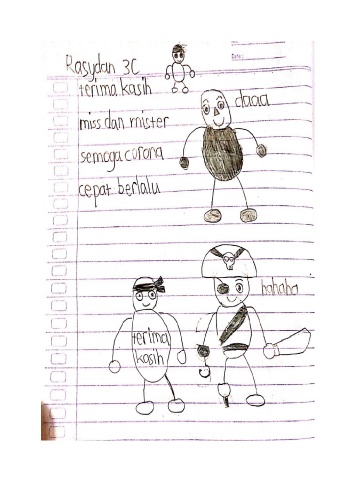 Rasydan 3C
terima kasih
daaa
miss dan mister
semoga corona
cepat berlalu
hahaha
terima
kasih